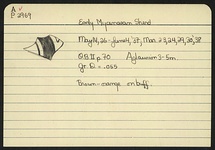 A ✓
P 2969
Early Mycenaean Strand
May 14, 26 - June 4, '37, Mar. 23, 24, 29, 30, '38
Q.B. II p. 70
3-5m.
Gr. El = .055
Brown-orange on buff